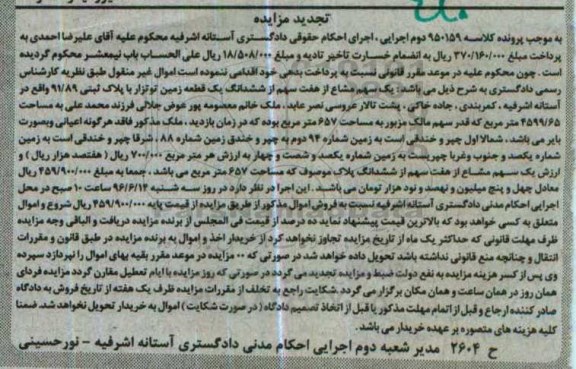 تجدید مزایده
به موجب پرونده کلاسه ۹۵۰۱۵۹ دوم اجرایی ، اجرای احکام حقوقی دادگستری آستانه اشرفیه محکوم علیه آقای علیرضا احمدی به
پرداخت مبلغ ۳۷۰/۱۶۰/۰۰۰ ریال به انضمام خسارت تاخیر تادیه و مبلغ ۱۸/۵۰۸/۰۰۰ ریال علی الحساب باب نیمعشر محکوم گردیده
است . چون محکوم علیه در موعد مقرر قانونی نسبت به پرداخت بدهی خود اقدامی ننموده است اموال غیر منقول طبق نظریه کارشناس
رسمی دادگستری به شرح ذیل می باشد: یک سهم مشاع از هفت سهم از ششدانگ یک قطعه زمین نوتزار با پلاک ثبتی ۹۱/۸۹ واقع در
آستانه اشرفیه ، کمربندی ، جاده خاکی ، پشت تالار عروسی نصر عابد ، ملک خانم معصومه پور عوض جلالی فرزند محمد علی به مساحت
۴۵۹۹/۶۵ متر مربع که قدر سهم مالک مزبور به مساحت ۶۵۷ متر مربع بوده که در زمان بازدید ، ملک مذکور فاقد هرگونه اعیانی وبصورت
بایر می باشد . شمالا اول چپر و خندقی است به زمین شماره ۹۴ دوم به چپر و خندق زمین شماره ۸۸ ، شرقا چپر و خندقی است به زمین
شماره یکصد و جنوب وغربا چپریست به زمین شماره یکصد و شصت و چهار به ارزش هر متر مربع ۷۰۰/۰۰۰ ریال ( هفتصد هزار ریال ) و
ارزش یک سهم مشاع از هفت سهم از ششدانگ پلاک موصوف که مساحت ۶۵۷ متر مربع می باشد . جمعا به مبلغ ۴۵۹/۹۰۰/۰۰۰ ریال
معادل چهل و پنج میلیون و نهصد و نود هزار تومان می باشید . این اجرا در نظر دارد در روز سه شنبه ۹۶/۶/۱۴ ساعت ۱۰ صبح در محل
اجرایی احکام مدنی دادگستری آستانه اشرفیه نسبت به فروش اموال مذکور از طریق مزایده از قیمت پایه ۴۵۹/۹۰۰/۰۰۰ ریال شروع و اموال
متعلق به کسی خواهد بود که بالاترین قیمت پیشنهاد نماید ده درصد از قیمت فی المجلس از برنده مزایده دریافت و الباقی وجه مزایده
ظرف مهلت قانونی که حداکثر یک ماه از تاریخ مزایده تجاوز نخواهد کرد از خریدار اخذ و اموال به برنده مزایده در طبق قانون و مقررات
انتقال و چنانچه منع قانونی نداشته باشد تحویل داده خواهد شد. در صورتی که مزایده در موعد مقرر بقیه بهای اموال را نپرداز سپرده
وی پس از کسر هزینه مزایده به نفع دولت ضبط و مزایده تجدید می گردد در صورتی که روز مزایده با ایام تعطیل مقارن گردد مزایده فردای
همان روز در همان ساعت و همان مکان برگزار می گردد .شکایت راجع به تخلف از مقررات مزایده ظرف یک هفته از تاریخ فروش به دادگاه
صادر کننده ارجاع و قبل از اتمام مهلت مذکور یا قبل از اتخاذ تصمیم دادگاه ( در صورت شکایت ) اموال به خریدار تحویل نخواهد شد. ضمنا
کلیه هزینه های متصوره بر عهده خریدار می باشد.
ح ۲۶۰۴ مدیر شعبه دوم اجرایی احکام مدنی دادگستری آستانه اشرفیه - نورحسینی